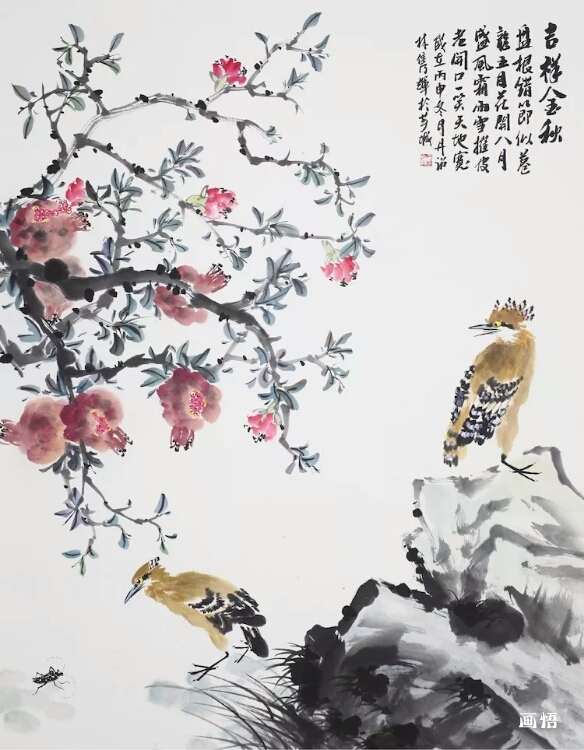 吉祥金秋
盘根错节即似卷
龙五月花开八月
盛风霜雨雪摧皮
老开口一笑天地宽
岁在丙申冬月丹诏
林
画悟